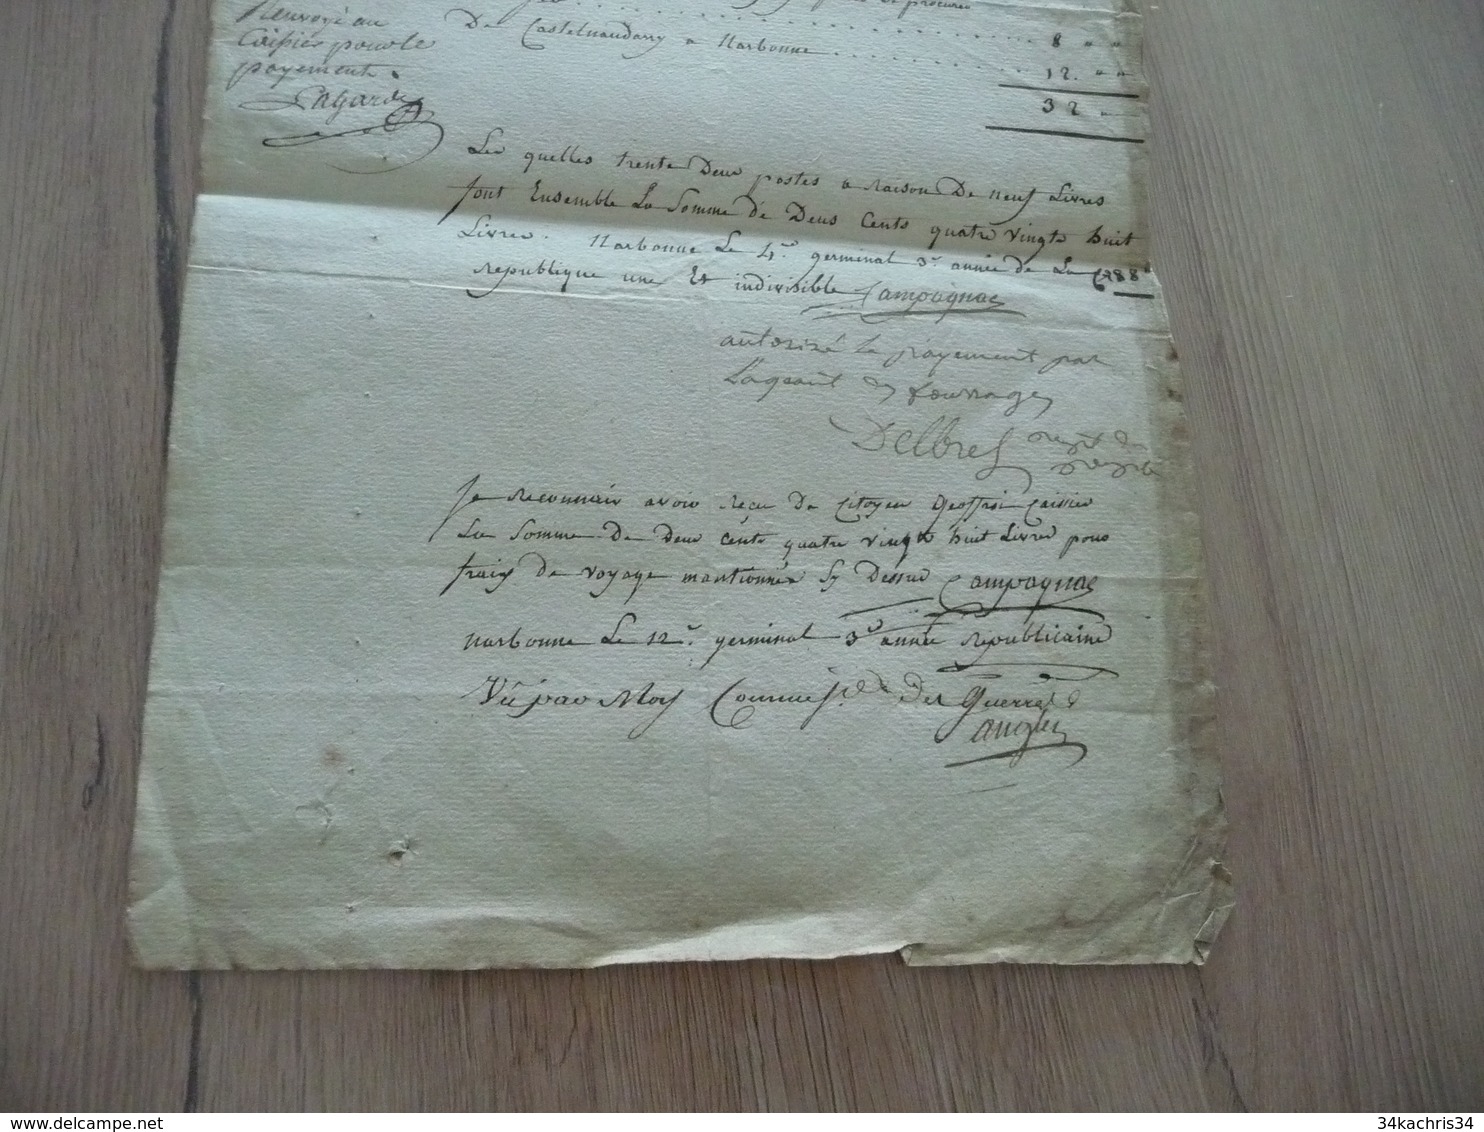 Renvoyé au
Caissier pour le
payement.
Lagarde
et procures
8 " "
De Castelnaudarry a Narbonne
12. " "
32
Les quelles trente Deux postes a Raison De neuf Livres
font Ensemble La Somme de Deux Cents quatre vingts huit
Livres. Narbonne Le 4.e germinal 3.e année de La 288
Republique une Et indivisible Campagnac
autorisé le payement par
L'ageant des fourrages
Delbres
Je Reconnais avoir Recu De Citoyen Geoffroi Caissier
La Somme De Deux Cents quatre vingts huit Livres pour
frais De voyage mantionnés Sy Dessus Campagnac
narbonne Le 12.e germinal 3.e année Republicaine
Vû par Noy Commiss.re des Guerres
angles
34kachris34
www.delcampe.net